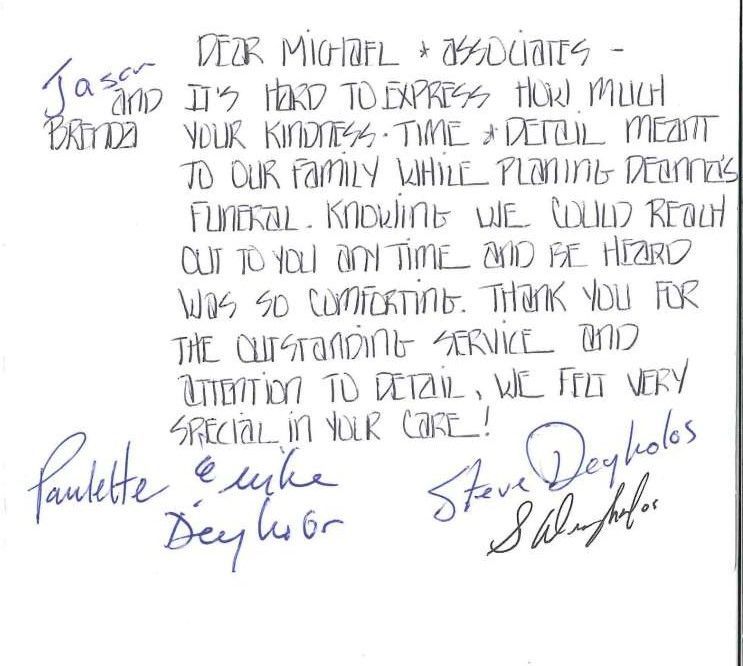 DEAR MICHAEL & ASSOCIATES -
Jason
AND
BRENDA
IT'S HARD TO EXPRESS HOW MUCH
YOUR KINDNESS. TIME & DETAIL MEANT
TO OUR FAMILY WHILE PLANING DEANNA'S
FUNERAL. KNOWING WE COULD REACH
OUT TO YOU ANY TIME AND BE HEARD
WAS SO COMFORTING. THANK YOU FOR
THE OUTSTANDING SERVICE AND
ATTENTION TO DETAIL, WE FELT VERY
SPECIAL IN YOUR CARE!
Paulette & Mike
Steve Deyholos